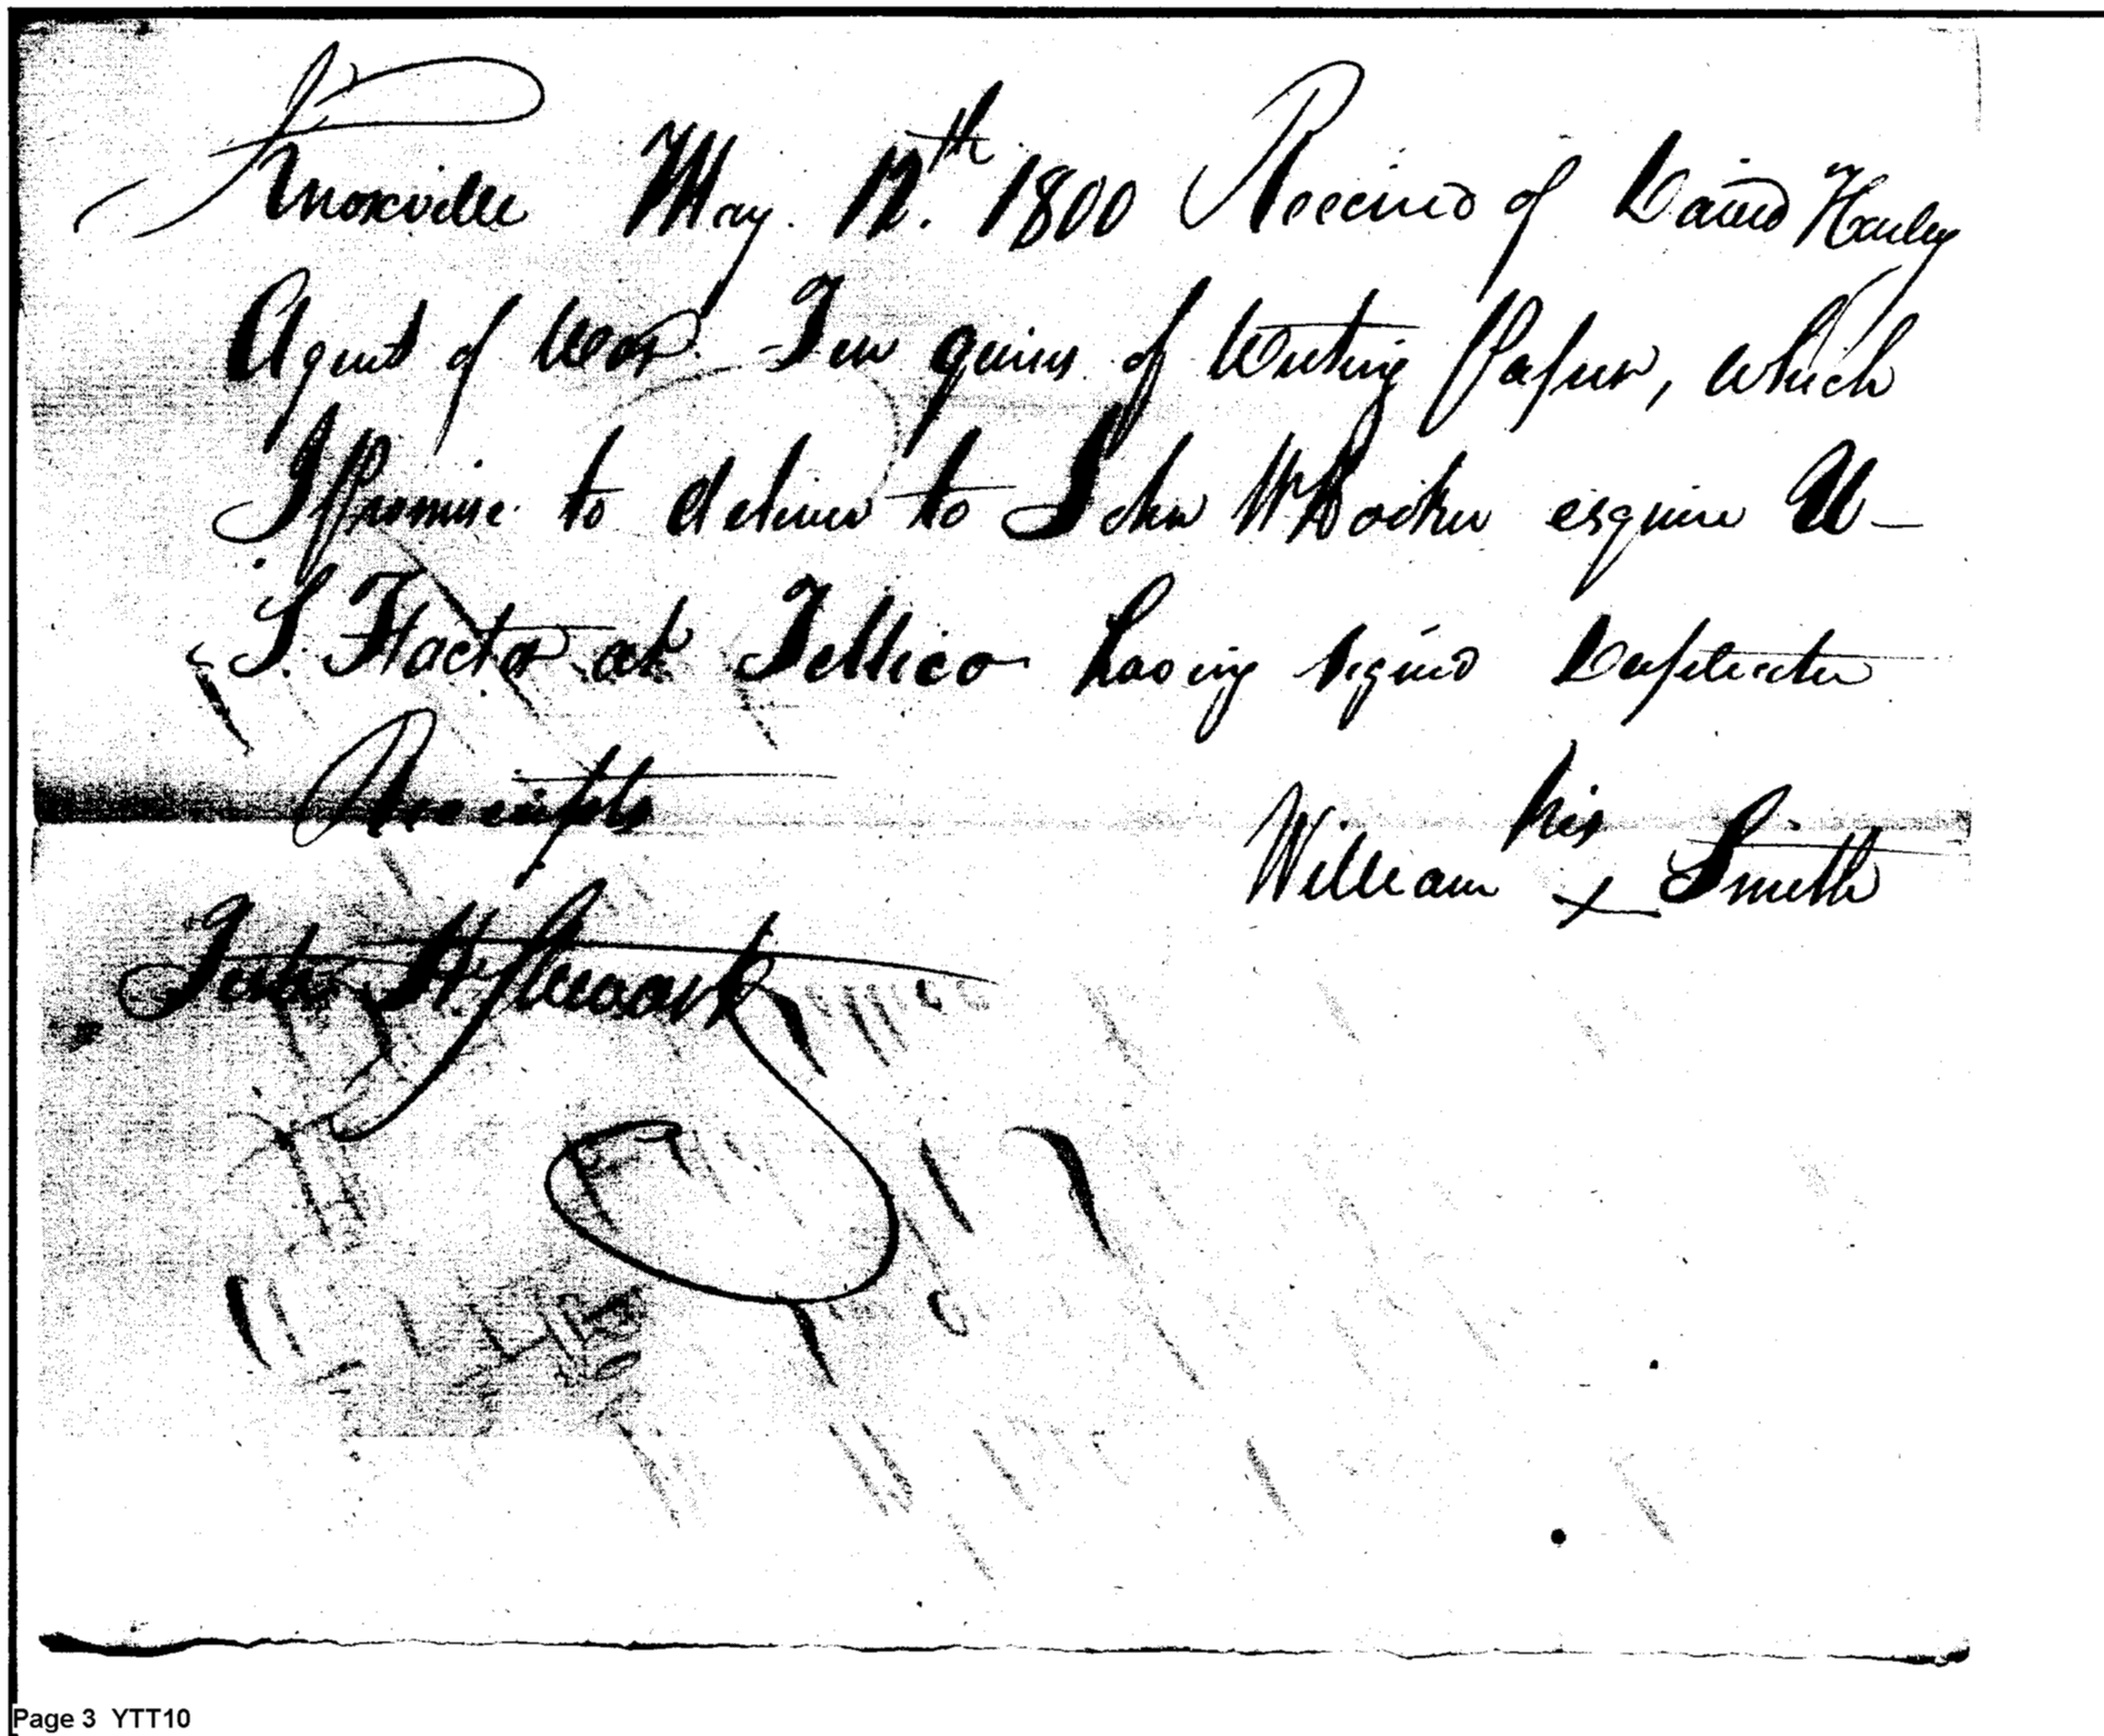 Knoxville May 12th. 1800 Received of David Henley
Agent of War. Ten quires of Writing Paper, which
I Promise to deliver to John W Hooker esquire U-
S. Factor at Tellico having signed Duplicate
Receipts
his
William x Smith
Test
Page 3 YTT10